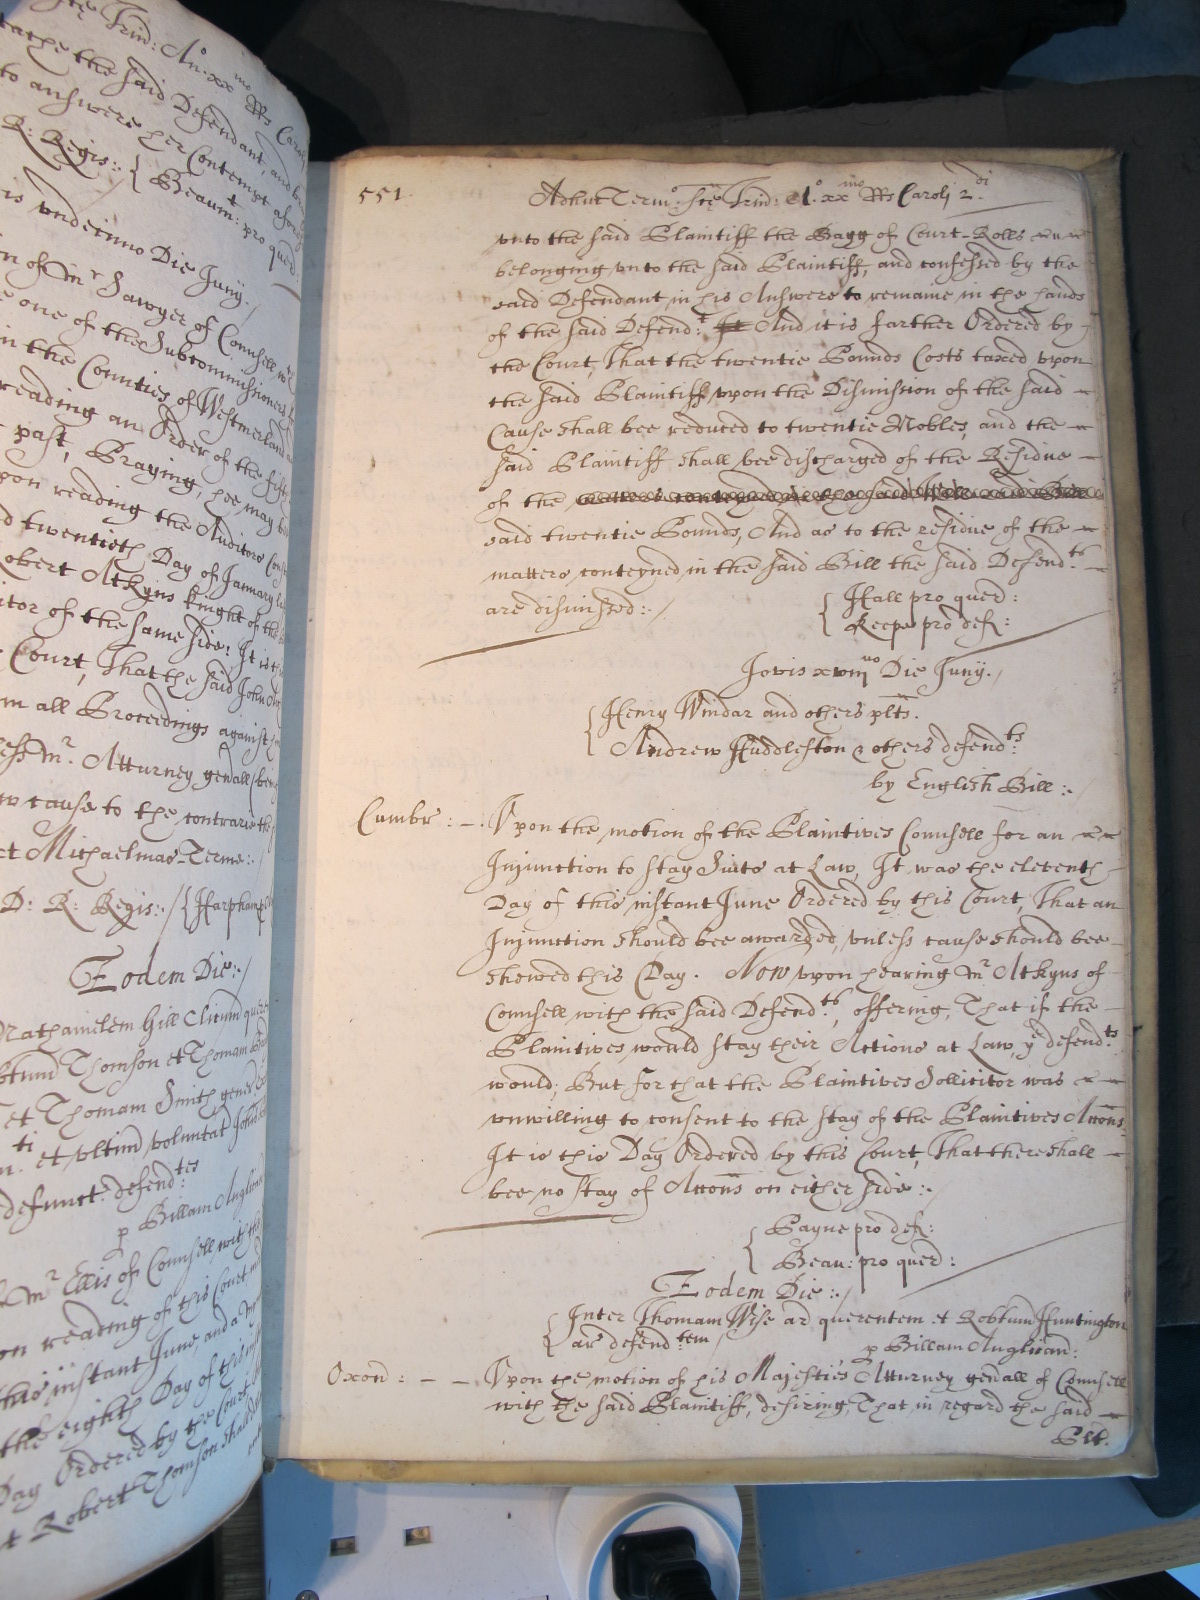 ste Trin: An: xx mo RRs Caroli
the said Defendant, and
to answere her Contempt afores
R: Regis: { Beaumt: pro quer:
is vndecimo Die Junij.
n of Mr Sawyer of Counsell wth
e one of the Subcommissioners
n the Counties of Westmerland
reading an Order of the fift
past, Praying, hee may be
pon reading the Auditors
d twentieth Day of January
obert Atkyns Knight of the
itor of the same side: It is
Court, That the said John
m all Proceedings against
esse Mr. Atturney genall
w cause to the contrarie the
xt Michaelmas-Terme:.
D: R: Regis:. { Harpham
Eodem Die:.
Nathanielem Gill Clicum quer
obtum Thomson et Thomam
et Thomam Smith gen
et vltim voluntat Johis
defunct: defendtes
p Billam Anglican
Mr Ellis of Counsell with the
on reading of this Court
this instant June, and a
the eighth Day of this
Day Ordered by the Court
t Robert Thomson shall
551.
Adhuc Termo: ste Trin: Ao. xxmo RRs Caroli 2.di
vnto the said Plaintiff the Bagg of Court-Rolls
belonging vnto the said Plaintiff, and confessed by the
said Defendant in his Answere to remaine in the hands
of the said Defend:t It And it is farther Ordered by
the Court, That the twentie Pounds Costs taxed vpon
the said Plaintiff vpon the Dismission of the said
Cause shall bee reduced to twentie Nobles, and the
said Plaintiff shall bee discharged of the Residue
of the matters conteyned in the said
said twentie Pounds, And as to the residue of the
matters conteyned in the said Bill the said Defend:ts
are dismissed:.
{ Hall pro quer:
Keepe pro def:
Jovis xviijuo Die Junij.
{ Henry Windar and others plts.
Andrew Huddleston & others defendts:
by English Bill:.
Cumbr: Vpon the motion of the Plaintives Counsell for an
Injunction to stay Suits at Law, It was the eleventh
Day of this instant June Ordered by this Court, That an
Injunction should bee awarded, vnless cause should bee
shewed this Day. Now vpon hearing Mr Atkyns of
Counsell with the said Defend:ts, offering, That if the
Plaintives would stay their Actions at Law, ye defend:ts
would; But for that the Plaintives Sollicitor was
vnwilling to consent to the stay of the Plaintives Accons.
It is this Day Ordered by this Court, That there shall
bee no stay of Accons on either side:.
{ Payne pro def:
Beau: pro quer:
Eodem Die:.
{ Inter Thomam Wise ar querentem et Robtum Huntington
ar defend:tem p Billam Anglican:
Oxon: Vpon the motion of his Majesties Atturney genall of Counsell
with the said Plaintiff, desiring, That in regard the said